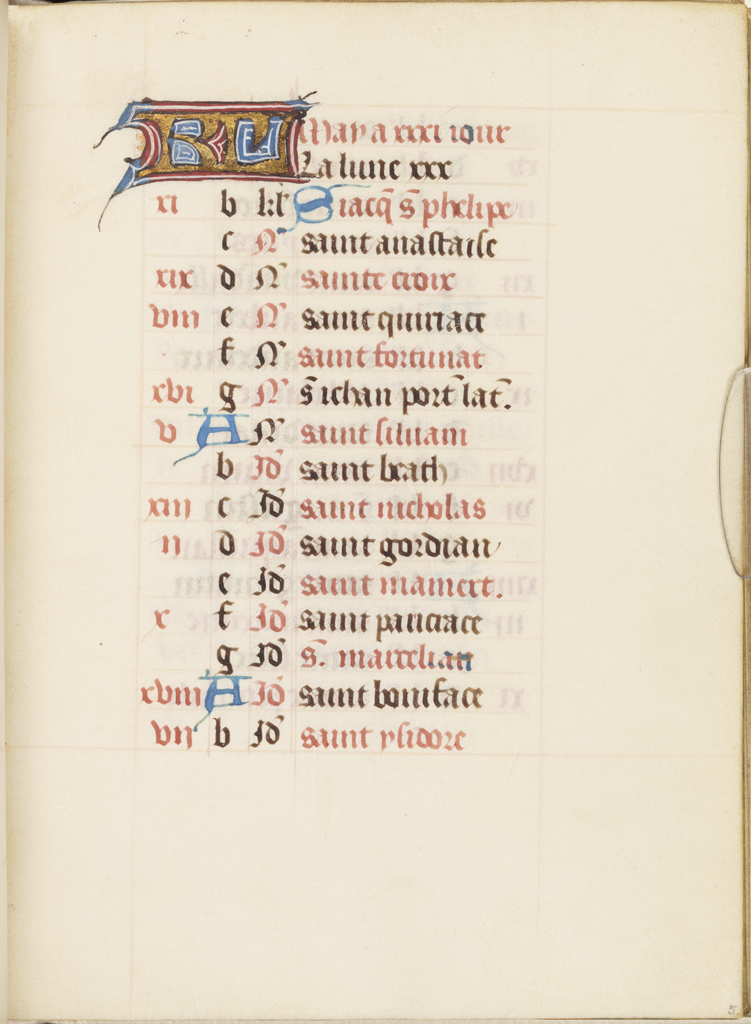 KL May a xxxi iour
La lune xxx
xi b kl' S iacq̄ s̄ phelipe
c N' saint anastaise
xix d N' sainte croix
viii e N' saint quiriace
f N' saint fortunat
xvi g N' s̄ iehan port lat'.
v A N' saint siluain
b Id' saint beath
xiii c Id' saint nicholas
ii d Id' saint gordian
e Id' saint mamert.
x f Id' saint pancrace
g Id' s̄. marcelian
xviii A Id' saint boniface
vii b Id' saint ysidore
5